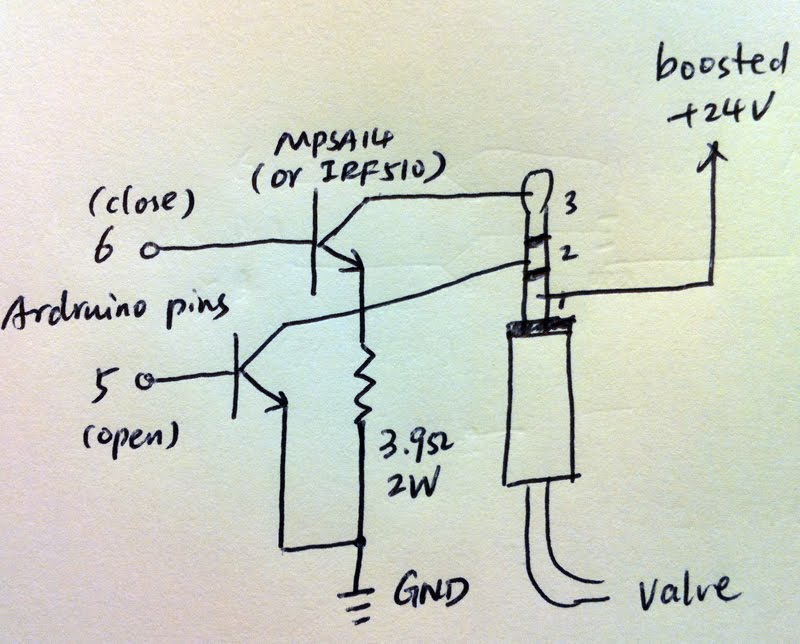 boosted
+24V
MPSA14
(or IRF510)
(close)
6
3
2
1
Ardruino pins
5
(open)
3.9Ω
2W
GND
valve